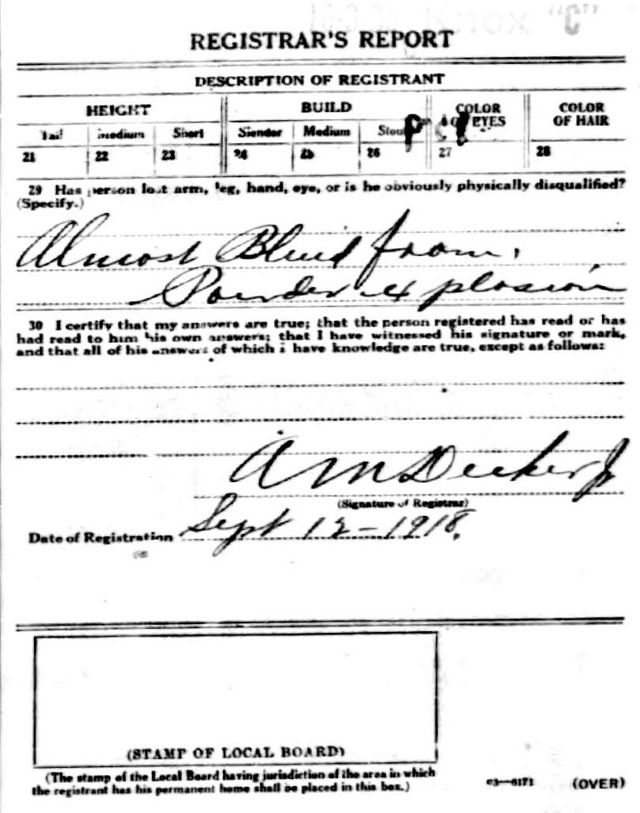 Knox "C"
REGISTRAR'S REPORT
DESCRIPTION OF REGISTRANT
HEIGHT BUILD COLOR OF EYES COLOR OF HAIR
Tall medium Short Slender Medium Stout
21 22 23 24 25 26 27 28
29 Has person lost arm, leg, hand, eye, or is he obviously physically disqualified?
(Specify.)
Almost Blind from
Powder explosion
30 I certify that my answers are true; that the person registered has read or has
had read to him his own answers; that I have witnessed his signature or mark,
and that all of his answers of which I have knowledge are true, except as follows:
A M Decker Jr
(Signature of Registrar)
Date of Registration Sept 12-1918.
(STAMP OF LOCAL BOARD)
(The stamp of the Local Board having jurisdiction of the area in which
the registrant has his permanent home shall be placed in this box.)
03—6171 (OVER)